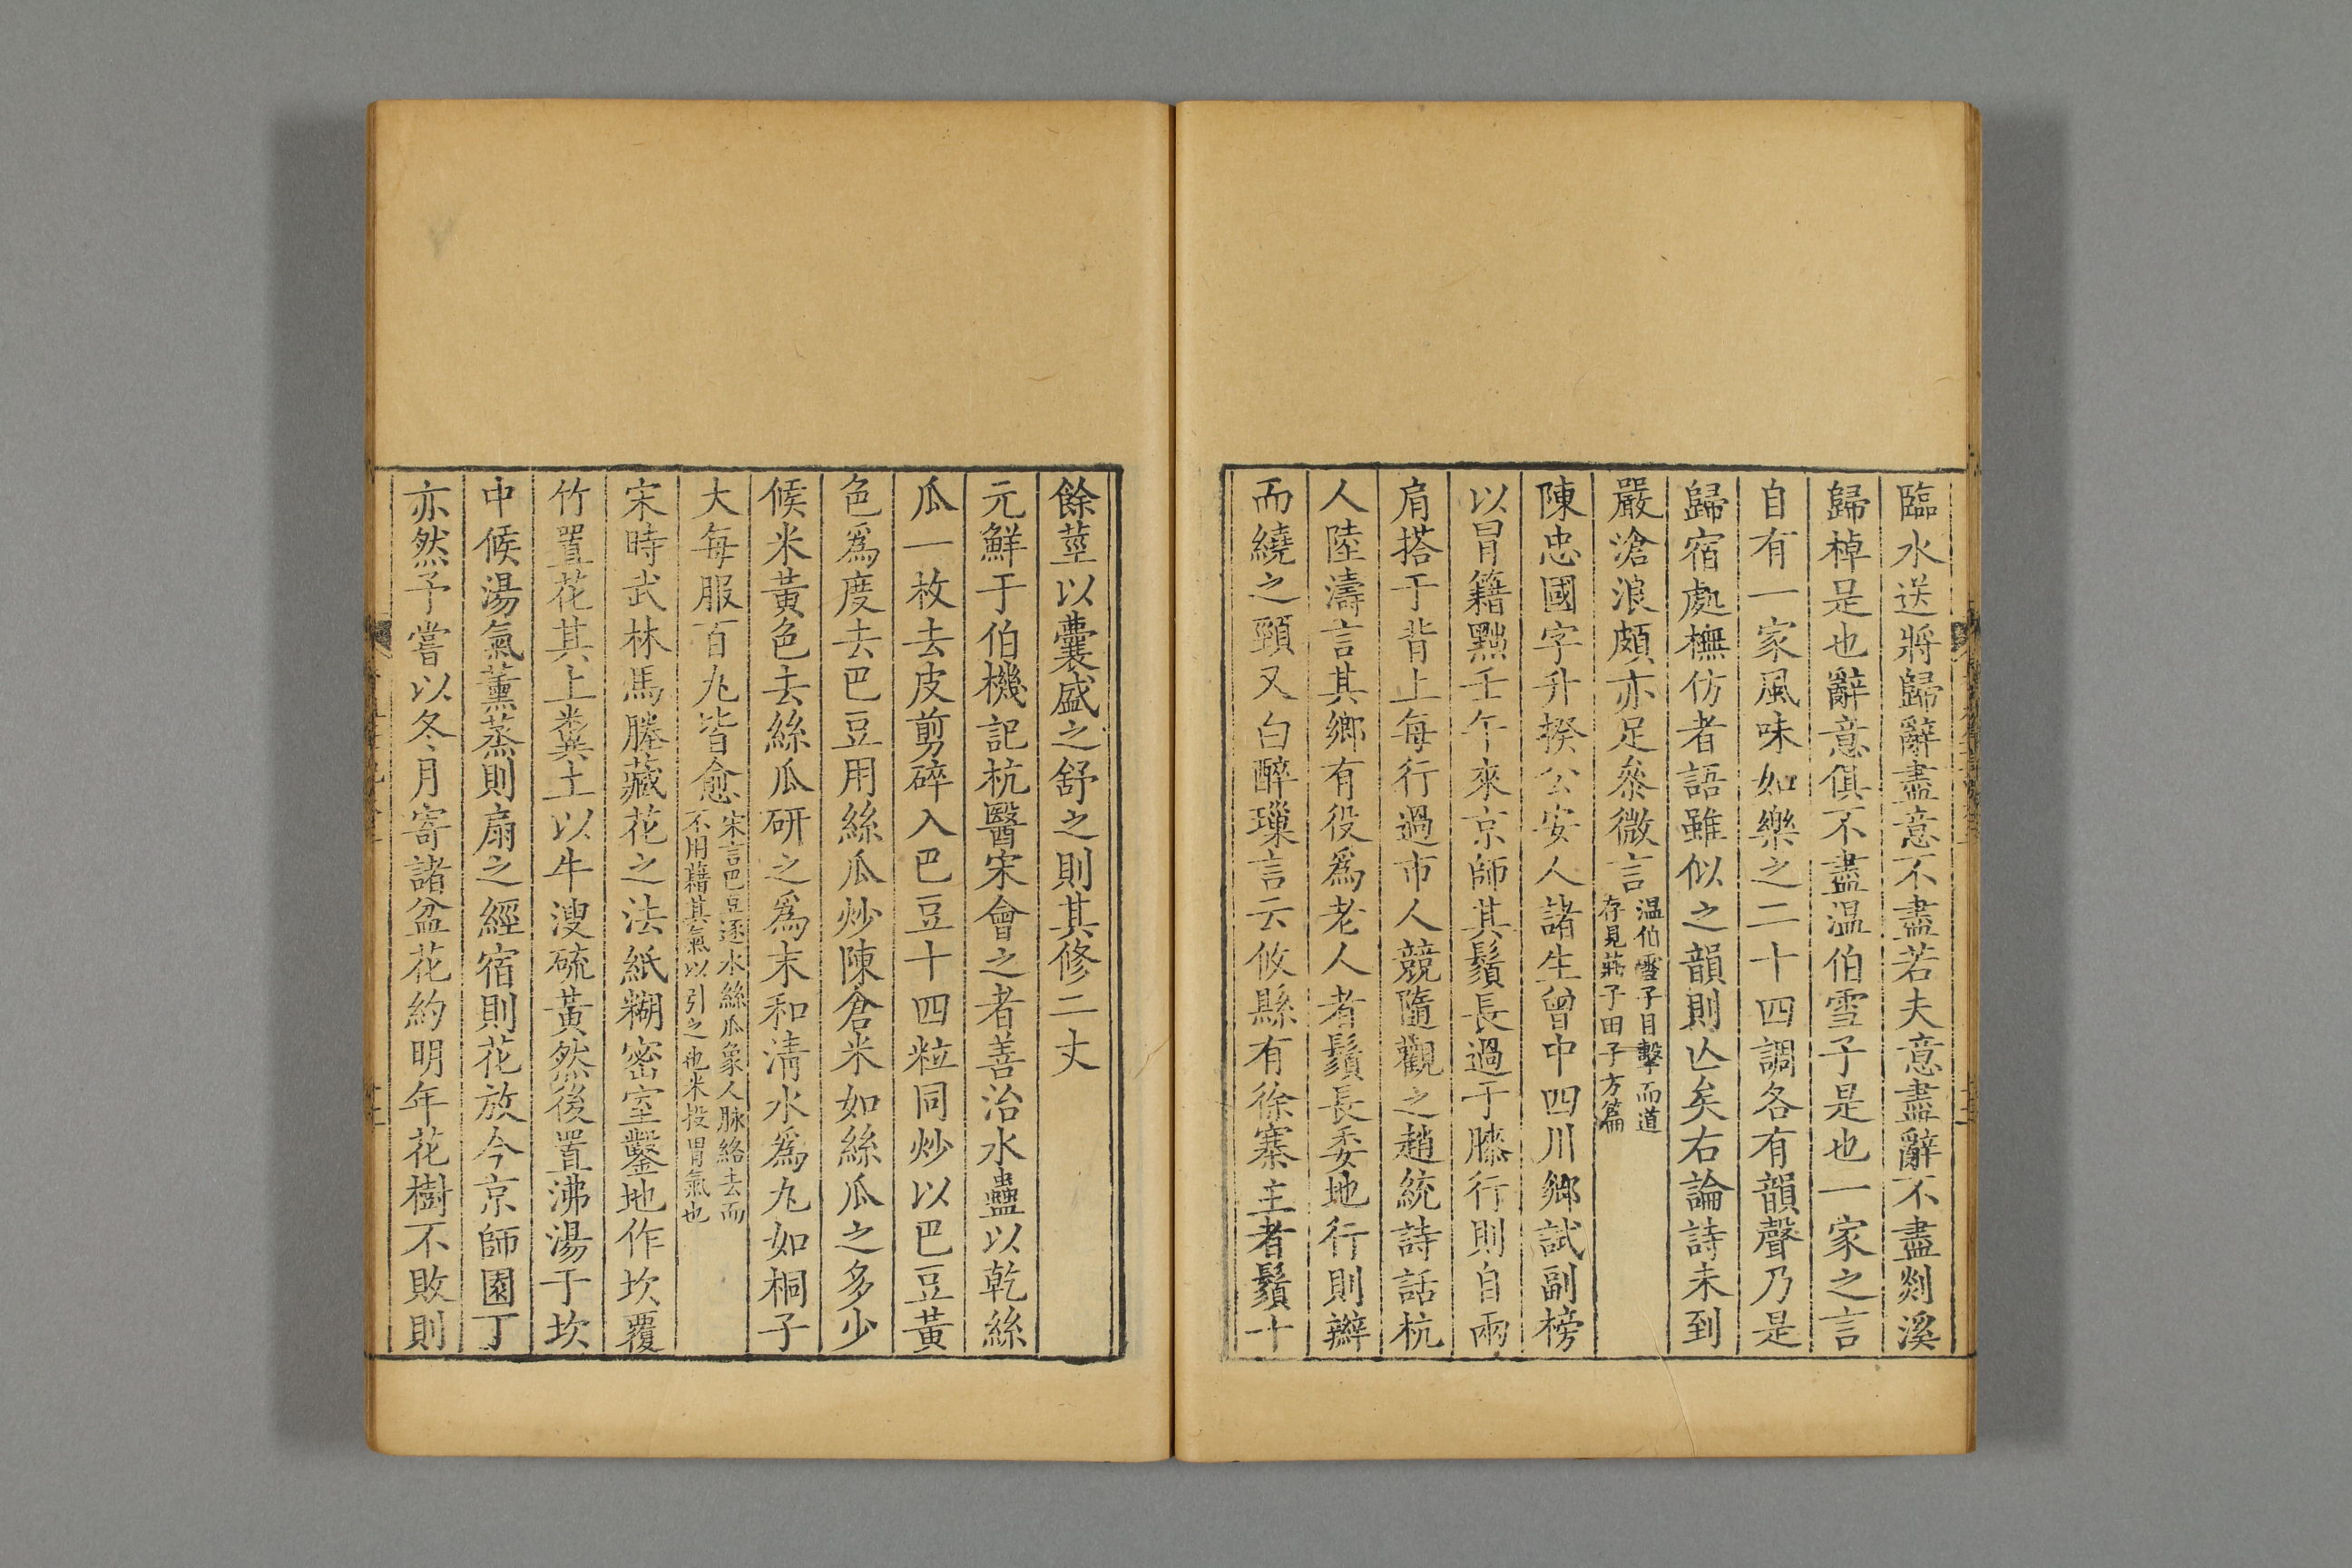 臨水送將歸辭盡意不盡若夫意盡辭不盡剡溪
歸棹是也辭意俱不盡温伯雪子是也一家之言
自有一家風味如樂之二十四調各有韻聲乃是
歸宿處橅仿者語雖似之韻則亾矣右論詩未到
嚴滄浪頗亦足叅微言温伯雪子目擊而道
存見莊子田子方篇
陳忠國字升揆公安人諸生曾中四川鄉試副榜
以冐籍黜壬午來京師其鬚長過于膝行則自兩
肩搭于背上每行過市人競隨觀之趙統詩話杭
人陸濤言其鄉有役爲老人者鬚長委地行則辮
而繞之頸又白醉璅言云攸縣有徐寨主者鬚十
餘莖以囊盛之舒之則其修二丈
元鮮于伯機記杭醫宋會之者善治水蠱以乾絲
瓜一枚去皮剪碎入巴豆十四粒同炒以巴豆黃
色爲度去巴豆用絲瓜炒陳倉米如絲瓜之多少
候米黃色去絲瓜研之爲末和清水爲丸如桐子
大每服百丸皆愈宋言巴豆逐水絲瓜象人脉絡去而
不用藉其氣以引之也米投胃氣也
宋時武林馬塍藏花之法紙糊密室鑿地作坎覆
竹置花其上糞土以牛溲硫黃然後置沸湯于坎
中候湯氣薰蒸則扇之經宿則花放今京師園丁
亦然予嘗以冬月寄諸盆花約明年花樹不敗則